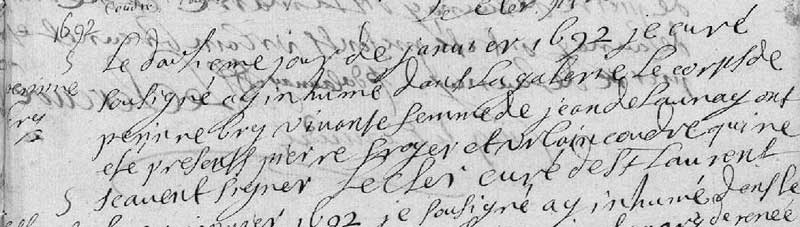 1692
le dousieme jour de janvier 1692 je curé
sousigné ay inhumé dans la galerie le corps de
perinne bry vivante femme de jean delaunay ont
esté presents pierre froger et urbain coudre qui ne
scavent signer Lecler curé de St Laurent
janvier 1692 je sousigné ay inhumé dans le
de renée